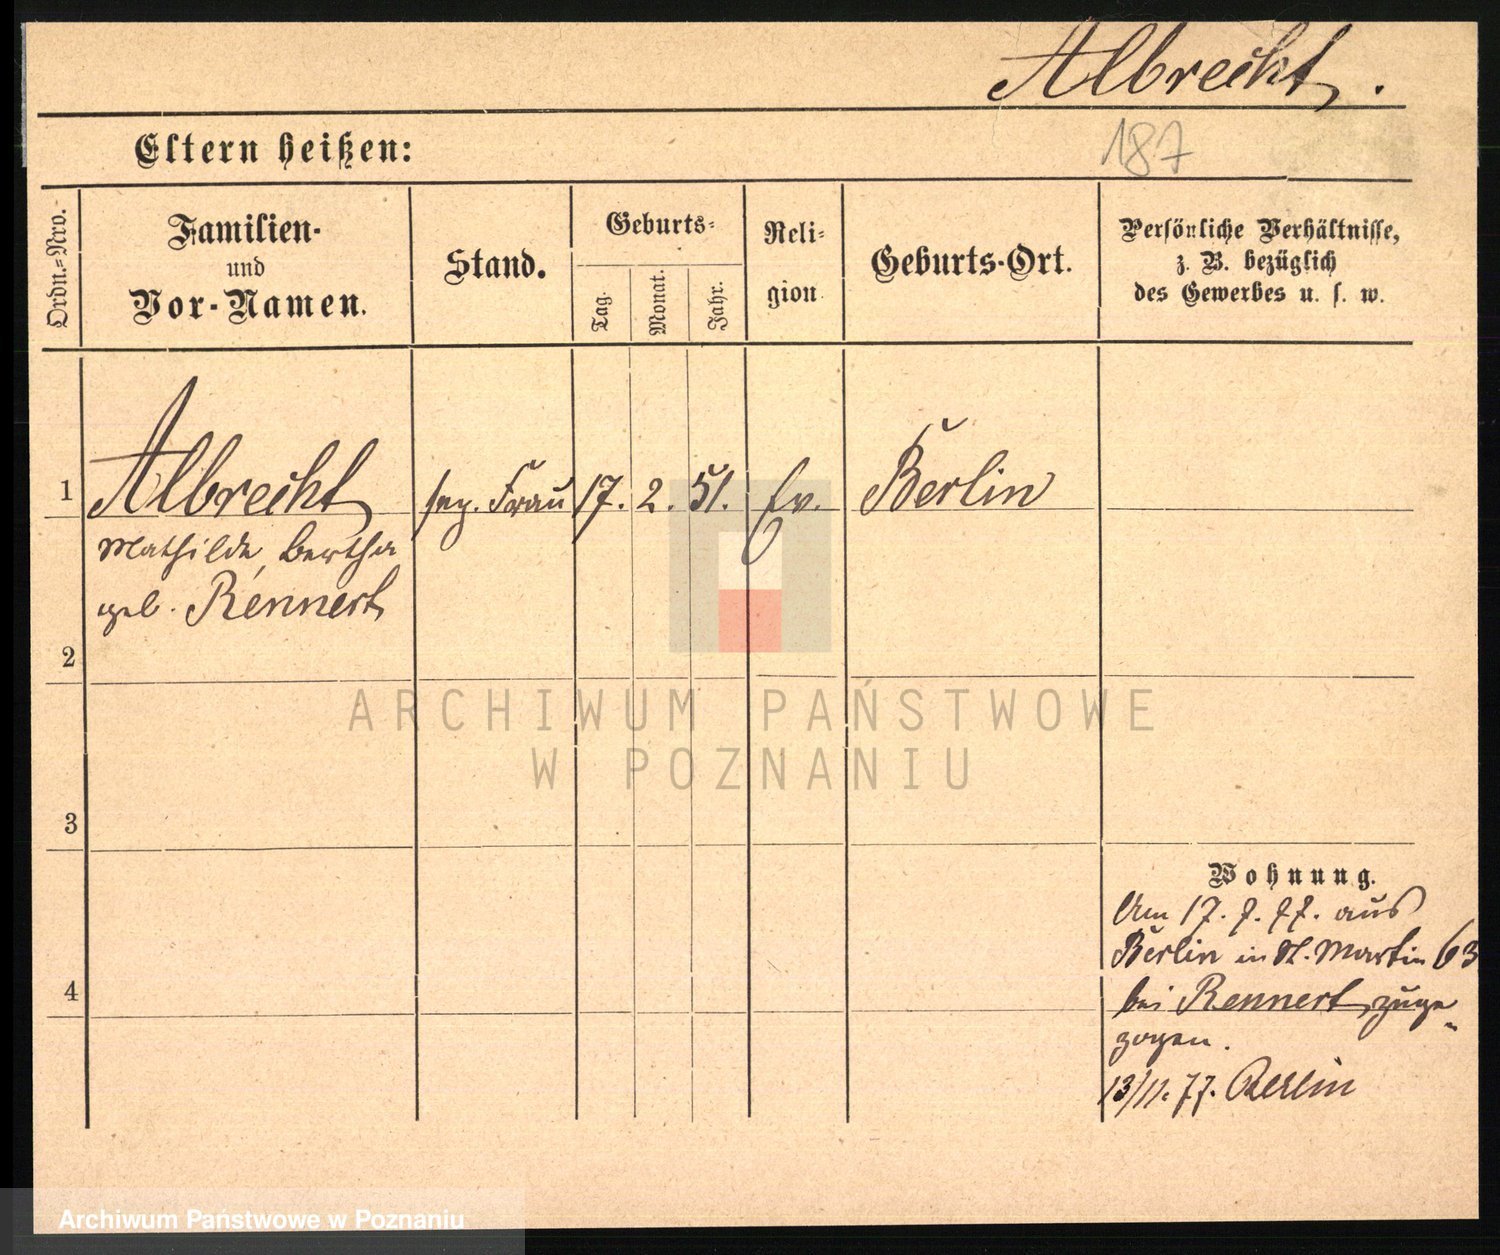 Albrecht.
187
Eltern heißen:
Ordn.=Nro.
Familien-
und
Vor-Namen.
Stand.
Geburts=
Tag.
Monat.
Jahr.
Reli=
gion
Geburts-Ort.
Persönliche Verhältnisse,
z. B. bezüglich
des Gewerbes u. s. w.
1 Albrecht Frau 17. 2. 51. Ev. Berlin
Mathilde, Bertha
geb. Rennert
2
ARCHIWUM PAŃSTWOWE
W POZNANIU
3
Wohnung.
Am 17. 7. 77. aus
Berlin in St. Martin 63
4
bei Rennert, zuge„
zogen.
13/11. 77. Berlin
Archiwum Państwowe w Poznaniu